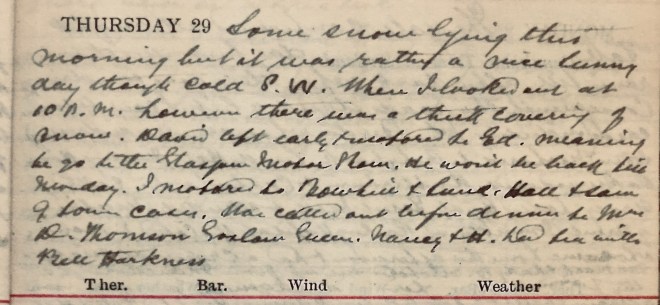 THURSDAY 29 Some snow lying this
morning but it was rather a nice sunny
day though cold S.W. When I looked out at
10 P.M. however there was a thick covering of
snow. David left early & motored to Ed. meaning
to go to the Glasgow Motor Show. He won't be back till
Monday. I motored to Bowhill & Lind. Hall & saw
9 town cases. Was called out before dinner to Mrs
D. Thomson Goslaw Green. Nancy & H. had tea with
Bell Harkness
Ther. Bar. Wind Weather